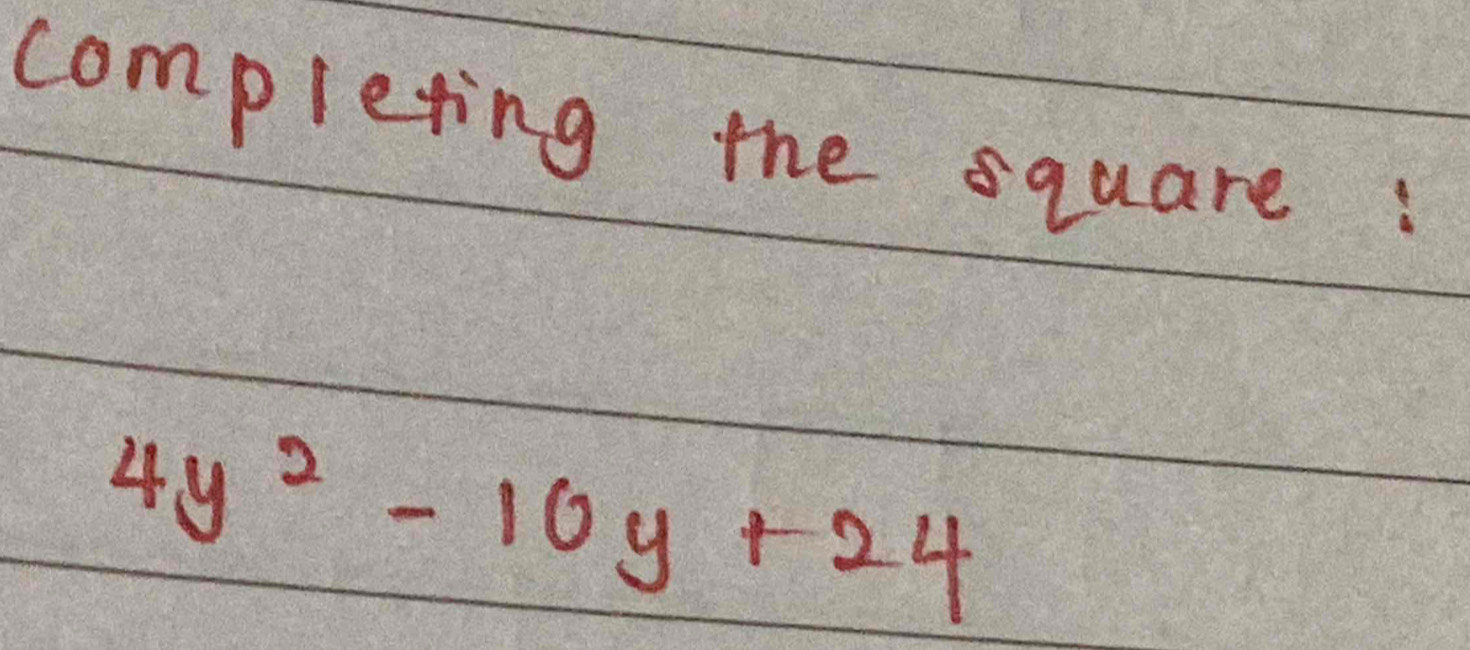 completing the square :
4y² - 10y + 24